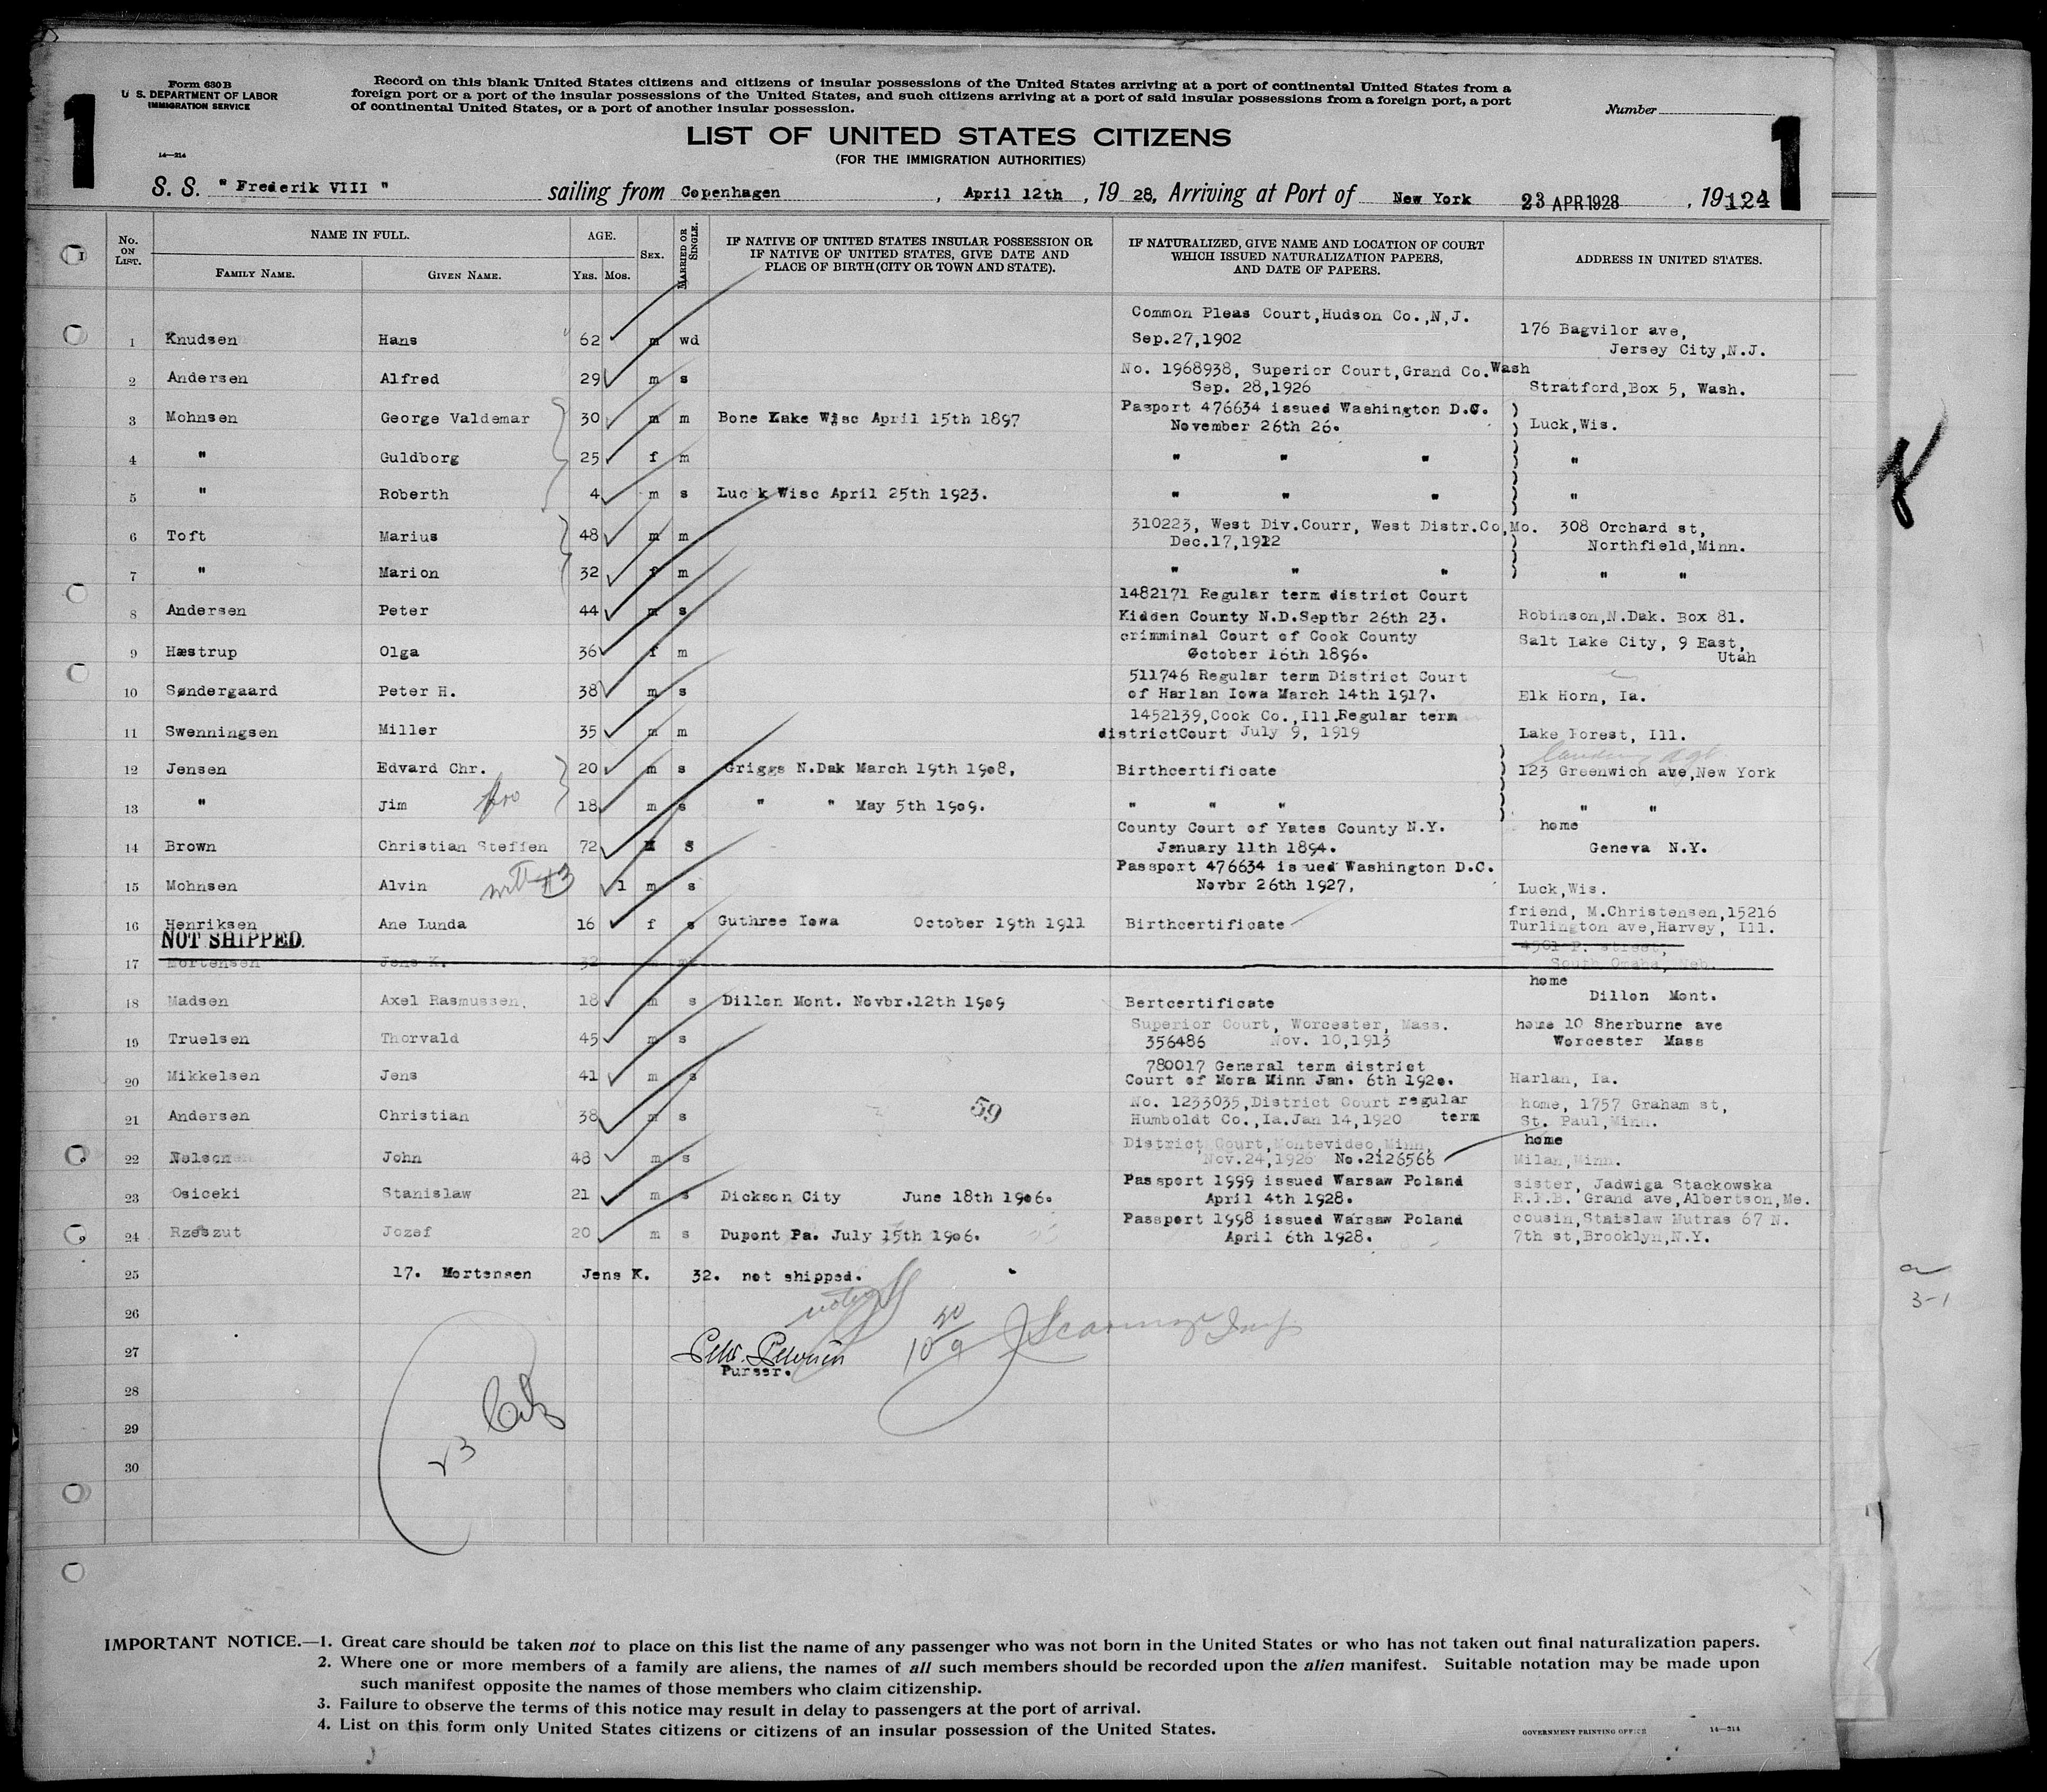 Form 630 B
U. S. DEPARTMENT OF LABOR
IMMIGRATION SERVICE
1
Record on this blank United States citizens and citizens of insular possessions of the United States arriving at a port of continental United States from a
foreign port or a port of the insular possessions of the United States, and such citizens arriving at a port of said insular possessions from a foreign port, a port
of continental United States, or a port of another insular possession.
Number
1
LIST OF UNITED STATES CITIZENS
(FOR THE IMMIGRATION AUTHORITIES)
14—214
S. S. " Frederik VIII " sailing from Copenhagen , April 12th , 19 28, Arriving at Port of New York 23 APR 1928 , 19 124
No. ON LIST.
NAME IN FULL.
FAMILY NAME. GIVEN NAME.
AGE.
YRS. MOS.
SEX.
MARRIED OR SINGLE.
IF NATIVE OF UNITED STATES INSULAR POSSESSION OR
IF NATIVE OF UNITED STATES, GIVE DATE AND
PLACE OF BIRTH (CITY OR TOWN AND STATE).
IF NATURALIZED, GIVE NAME AND LOCATION OF COURT
WHICH ISSUED NATURALIZATION PAPERS,
AND DATE OF PAPERS.
ADDRESS IN UNITED STATES.
Common Pleas Court,Hudson Co.,N,J. 176 Bagvilor ave,
1 Knudsen Hans 62 m wd Sep.27,1902 Jersey City,N.J.
No. 1968938, Superior Court,Grand Co.Wash
2 Andersen Alfred 29 m s Sep. 28,1926 Stratford,Box 5, Wash.
Pasport 476634 issued Washington D.C.
3 Mohnsen George Valdemar 30 m m Bone Lake Wisc April 15th 1897 November 26th 26. Luck,Wis.
4 " Guldborg 25 f m " " " "
5 " Roberth 4 m s Luc k Wisc April 25th 1923. " " " "
310223, West Div.Courr, West Distr.Co,Mo. 308 Orchard st,
6 Toft Marius 48 m m Dec.17,1912 Northfield,Minn.
7 " Marion 32 f m " " " " "
1482171 Regular term district Court
8 Andersen Peter 44 m s Kidden County N.D.Septbr 26th 23. Robinson,N.Dak. Box 81.
crimminal Court of Cook County Salt Lake City, 9 East,
9 Hæstrup Olga 36 f m October 16th 1896. Utah
511746 Regular term District Court
10 Søndergaard Peter H. 38 m s of Harlan Iowa March 14th 1917. Elk Horn, Ia.
1452139,Cook Co.,Ill.Regular term
11 Swenningsen Miller 35 m m districtCourt July 9, 1919 Lake Forest, Ill.
landing agt
12 Jensen Edvard Chr. 20 m s Griggs N.Dak March 19th 1908, Birthcertificate 123 Greenwich ave,New York
13 " Jim 18 m s " " May 5th 1909. " " " " "
County Court of Yates County N.Y. home
14 Brown Christian Steffen 72 M S January 11th 1894. Geneva N.Y.
Passport 476634 is ued Washington D.C.
15 Mohnsen Alvin with #3 1 m s Novbr 26th 1927, Luck,Wis.
friend, M.Christensen,15216
16 Henriksen Ane Lunda 16 f s Guthree Iowa October 19th 1911 Birthcertificate Turlington ave,Harvey, Ill.
NOT SHIPPED.
17 Mortensen Jens K. 32 m South Omaha, Neb.
home
18 Madsen Axel Rasmussen, 18 m s Dillon Mont. Novbr.12th 1909 Bertcertificate Dillon Mont.
Superior Court, Worcester, Mass. home 10 Sherburne ave
19 Truelsen Thorvald 45 m s 356486 Nov. 10,1913 Worcester Mass
780017 General term district
20 Mikkelsen Jens 41 m s Court of Mora Minn Jan. 6th 1920. Harlan, Ia.
No. 1233035,District Court regular home, 1757 Graham st,
21 Andersen Christian 38 m s 59 Humboldt Co.,Ia.Jan 14,1920 term St. Paul,Minn.
District Court,Montevideo,Minn, home
22 Nelson John 48 m s Nov.24,1926 No.2126566 Milan,Minn.
Passport 1999 issued Warsaw Poland sister, Jadwiga Stackowska
23 Osiceki Stanislaw 21 m s Dickson City June 18th 1906. April 4th 1928. R.F.B. Grand ave,Albertson,Me.
Passport 1998 issued Warsaw Poland cousin,Stnislaw Mutras 67 N.
24 Rzeszut Jozef 20 m s Dupont Pa. July 15th 1906. April 6th 1928. 7th st,Brooklyn,N.Y.
25 17. Mortensen Jens K. 32. not shipped.
26
27
Purser.
28
29
30
23 Cits
3-1
IMPORTANT NOTICE.—1. Great care should be taken not to place on this list the name of any passenger who was not born in the United States or who has not taken out final naturalization papers.
2. Where one or more members of a family are aliens, the names of all such members should be recorded upon the alien manifest. Suitable notation may be made upon
such manifest opposite the names of those members who claim citizenship.
3. Failure to observe the terms of this notice may result in delay to passengers at the port of arrival.
4. List on this form only United States citizens or citizens of an insular possession of the United States.
GOVERNMENT PRINTING OFFICE 14—214